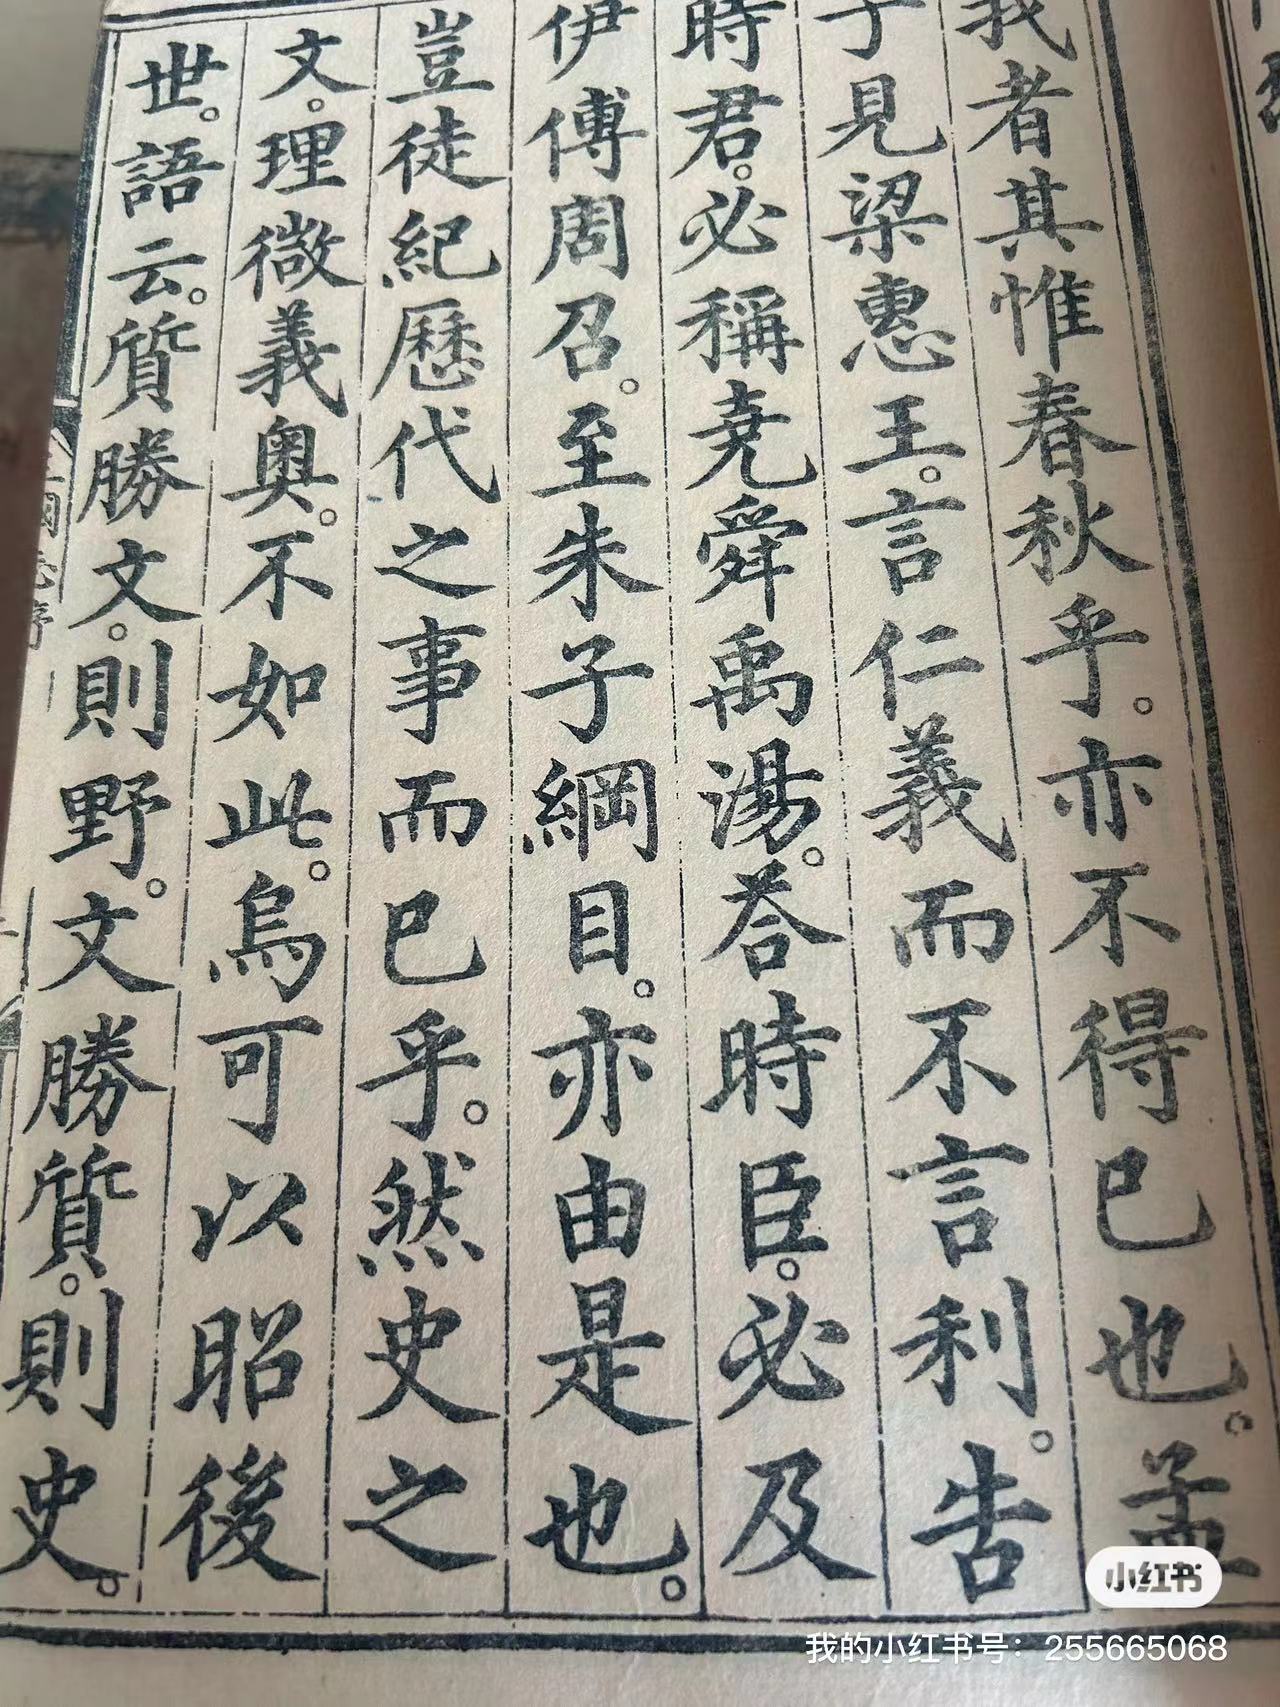 我者其惟春秋乎。亦不得已也。孟
子見梁惠王。言仁義而不言利。告
時君。必稱尭舜禹湯。荅時臣。必及
伊傅周召。至朱子綱目。亦由是也。
豈徒紀歷代之事而已乎。然史之
文。理微義奥。不如此。烏可以昭後
世。語云。質勝文。則野。文勝質。則史。
小红书
我的小红书号：255665068